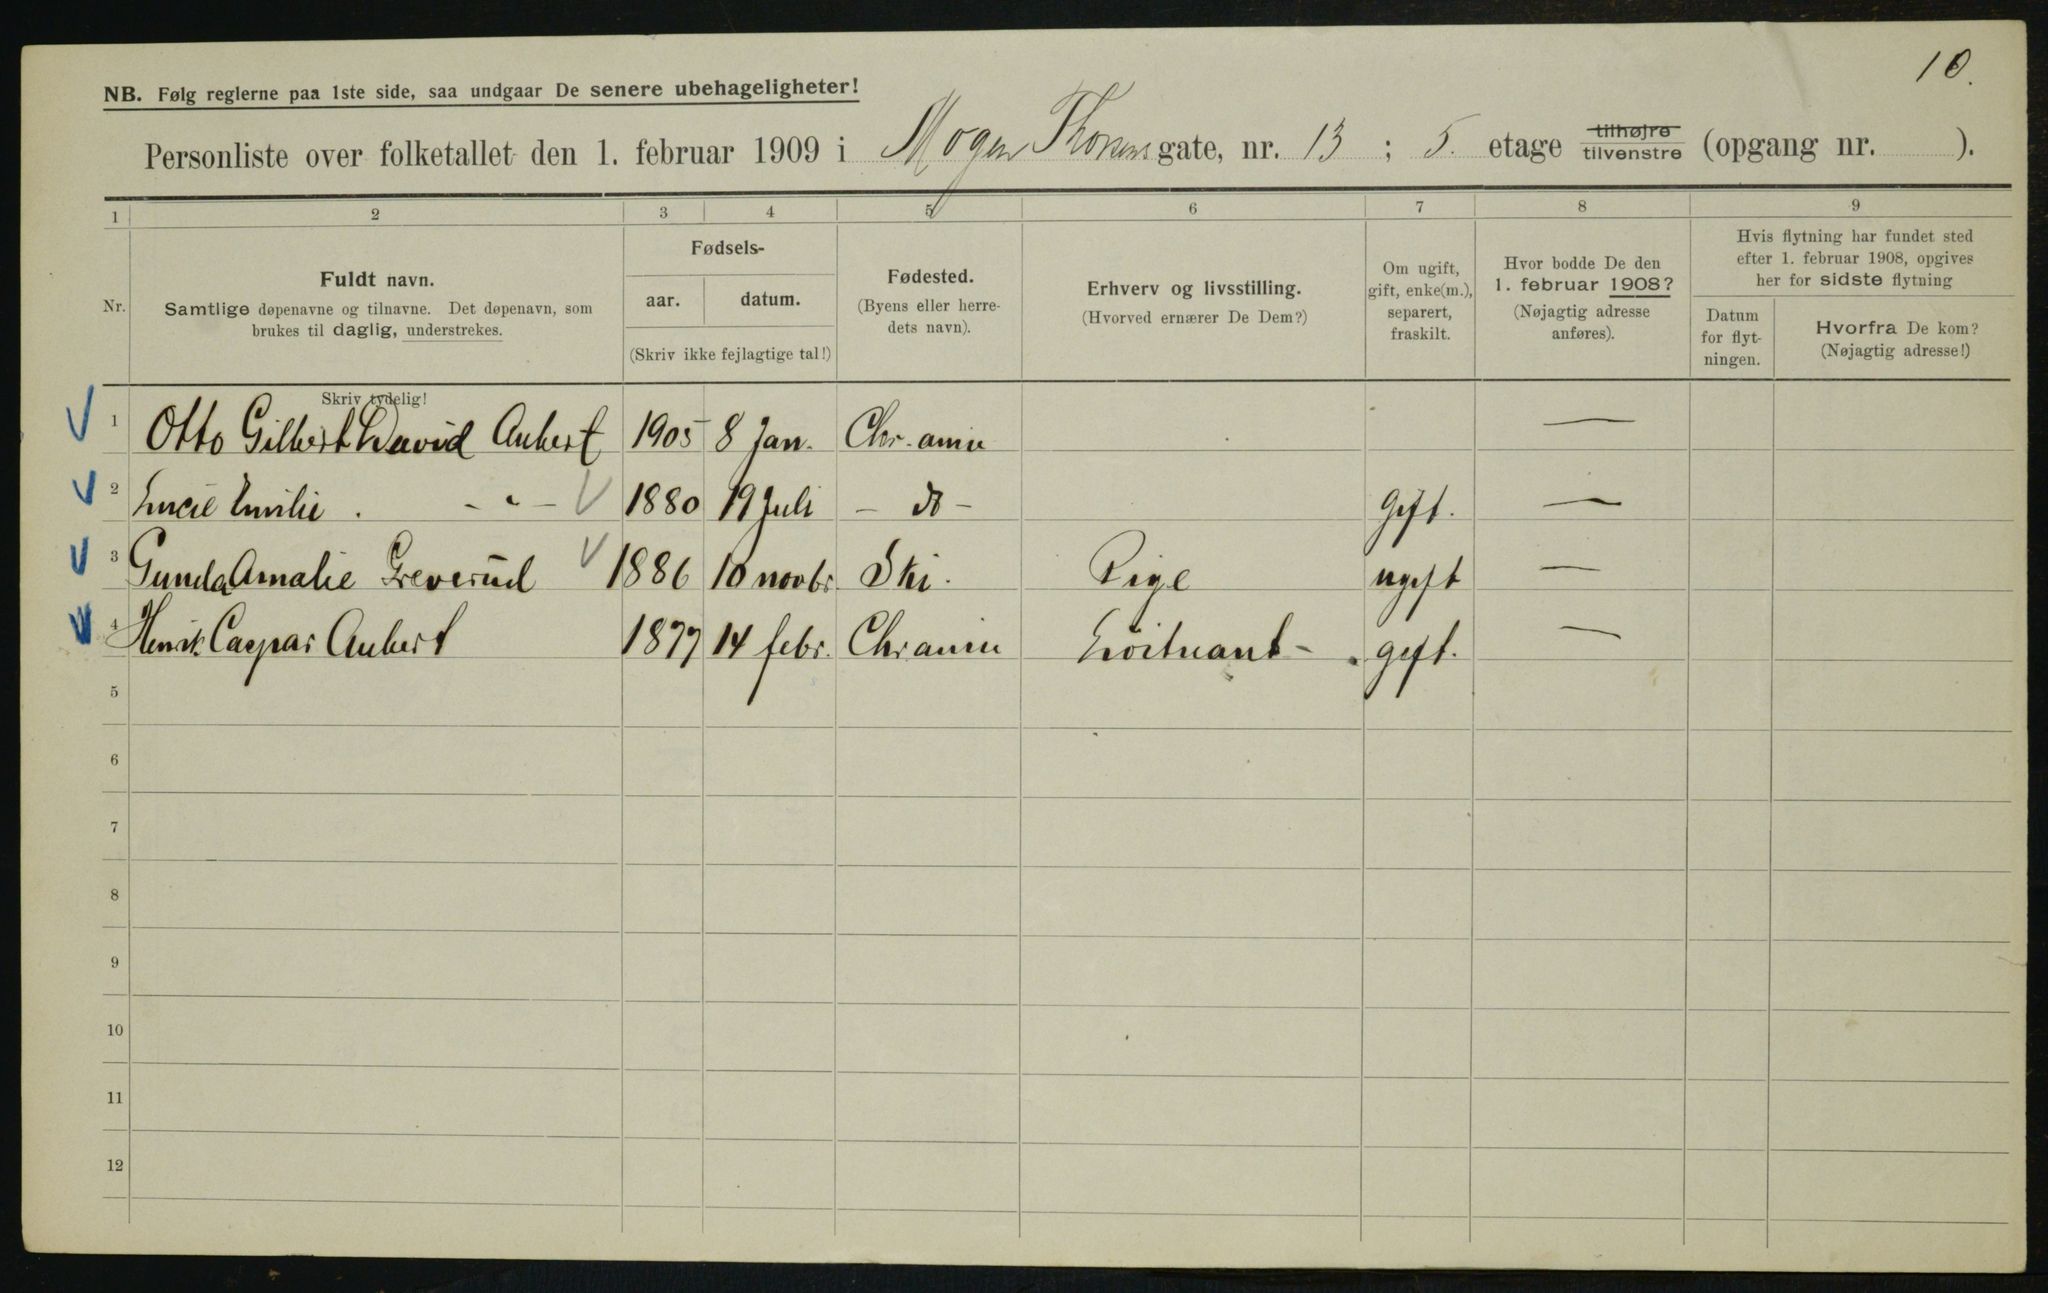 10.
NB. Følg reglerne paa 1ste side, saa undgaar De senere ubehageligheter!
Personliste over folketallet den 1. februar 1909 i Mogen Thorsens gate, nr. 13 ; 5. etage tilhøjre tilvenstre (opgang nr. ).
1 2 3 4 5 6 7 8 9
Nr.
Fuldt navn.
Samtlige døpenavne og tilnavne. Det døpenavn, som
brukes til daglig, understrekes.
Fødsels-
aar. datum.
(Skriv ikke fejlagtige tal!)
Fødested.
(Byens eller herre-
dets navn).
Erhverv og livsstilling.
(Hvorved ernærer De Dem?)
Om ugift,
gift, enke(m.),
separert,
fraskilt.
Hvor bodde De den
1. februar 1908?
(Nøjagtig adresse
anføres).
Hvis flytning har fundet sted
efter 1. februar 1908, opgives
her for sidste flytning
Datum
for flyt-
ningen.
Hvorfra De kom?
(Nøjagtig adresse!)
Skriv tydelig!
1 Otto Gilbert David Aubert 1905 8 Jan. Chr.ania —
2 Lucie Emilie . - " - 1880 19 Juli - do - Gift. —
3 Gunda Amalie Greverud 1886 10 novbr. Ski. Pige ugift —
4 Henrik Caspar Aubert 1877 14 febr. Chrania Löitnant - gift. —
5
6
7
8
9
10
11
12